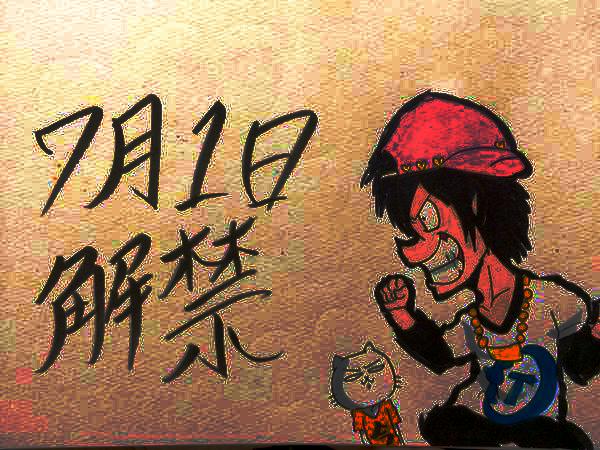 7月1日
解禁